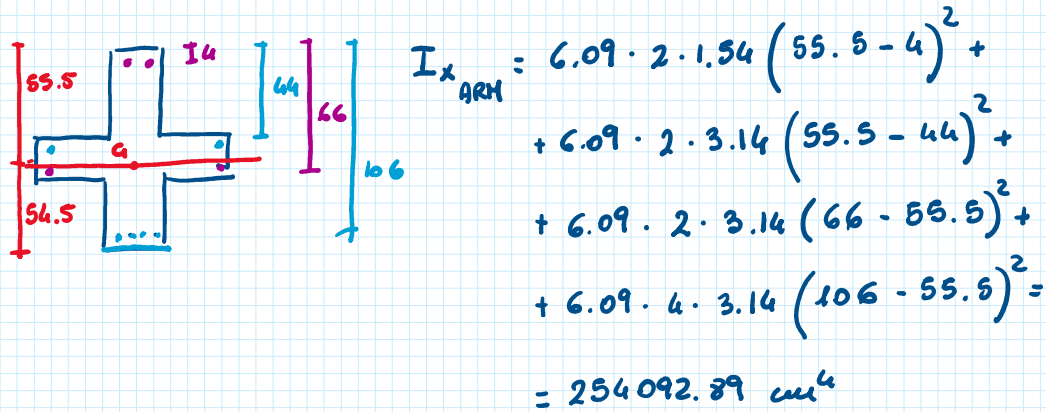 55.5
54.5
G
I4
44
66
106
I x ARM = 6.09 · 2 · 1.54 (55.5 - 4)² +
+ 6.09 · 2 · 3.14 (55.5 - 44)² +
+ 6.09 · 2 · 3.14 (66 - 55.5)² +
+ 6.09 · 4 · 3.14 (106 - 55.5)² =
= 254092.89 cm⁴